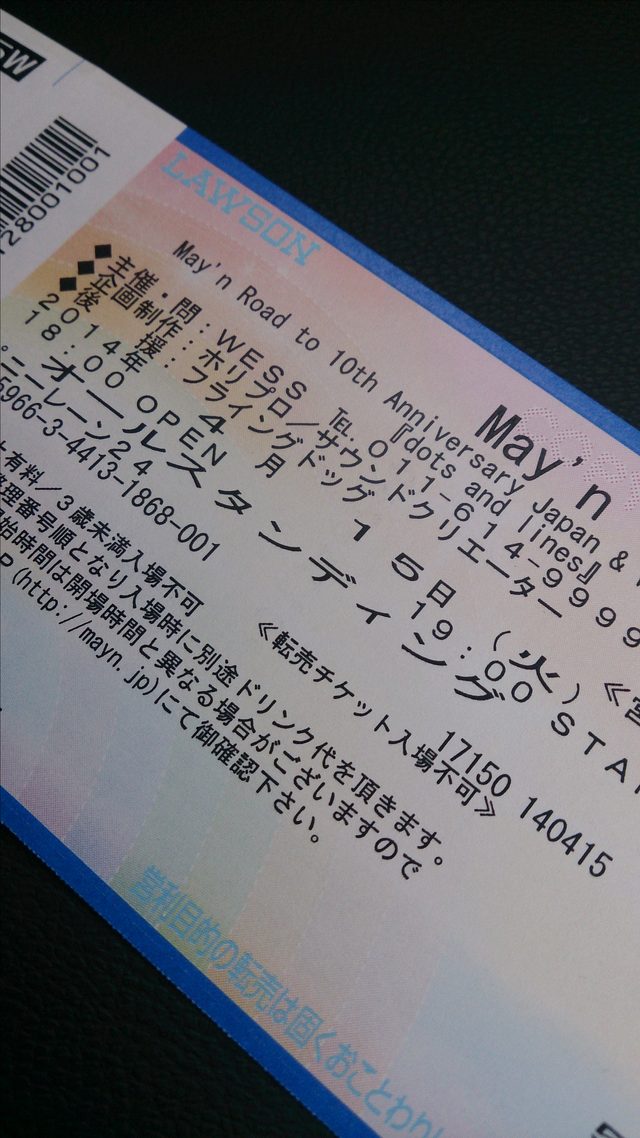 SW
28001001
LAWSON
May'n
May'n Road to 10th Anniversary Japan &
『dots and lines』
◆主催・問：WESS ℡.011-614-9999
◆企画制作：ホリプロ／サウンドクリエーター
◆後　援：フライングドッグ
2014年 4月 15日 （火）
18：00 OPEN 19：00 STA
オールスタンディング
ニーレーン24
5966-3-4413-1868-001
≪転売チケット入場不可≫
17150 140415
有料／３歳未満入場不可
整理番号順となり入場時に別途ドリンク代を頂きます。
始時間は開場時間と異なる場合がございますので
P(http://mayn.jp)にて御確認下さい。
営利目的の転売は固くおことわり